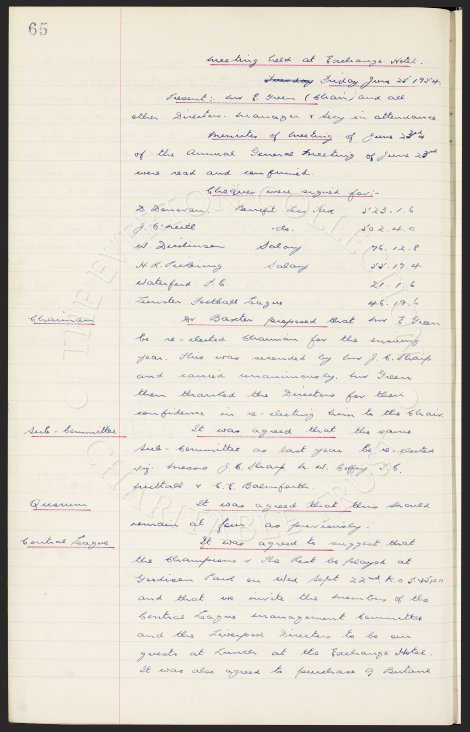 65
Meeting held at Exchange Hotel.
Friday June 25 1954.
Present: Mr E. Green (Chair) and all
other Directors. Manager & Secy in attendance
Minutes of Meeting of June 23rd
of the Annual General Meeting of June 23rd
were read and confirmed.
Cheques were signed for:-
D. Donovan. Benefit less tax 523.1.6
J. O'Neill -do. 502.4.0
W. Dickinson Salary 76.12.8
H.R. Pickering Salary 55.17.4
Waterford F.C 21.1.6
Leinster Football League 46.17.6
Chairman Dr Baxter proposed that Mr E Green
be re-elected Chairman for the ensuing
year. This was seconded by Mr J.C. Sharp
and carried unanimously. Mr Green
then thanked the Directors for their
confidence in re-electing him to the Chair.
Sub-Committee It was agreed that the same
Sub-Committee as last year be re-elected
viz. Messrs J.C. Sharp N. W. Coffey F.C.
Nuttall & C.E. Balmforth.
Quorum It was agreed that this should
remain at four as previously.
Central League It was agreed to suggest that
the Champions v The Rest be played at
Goodison Park on Wed Sept 22nd K.O 5.45pm
and that we invite the members of the
Central League Management Committee
and the Liverpool Directors to be our
guests at Lunch at the Exchange Hotel.
It was also agreed to purchase 9 Butane
THE EVERTON COLLECTION
CHARITABLE TRUST